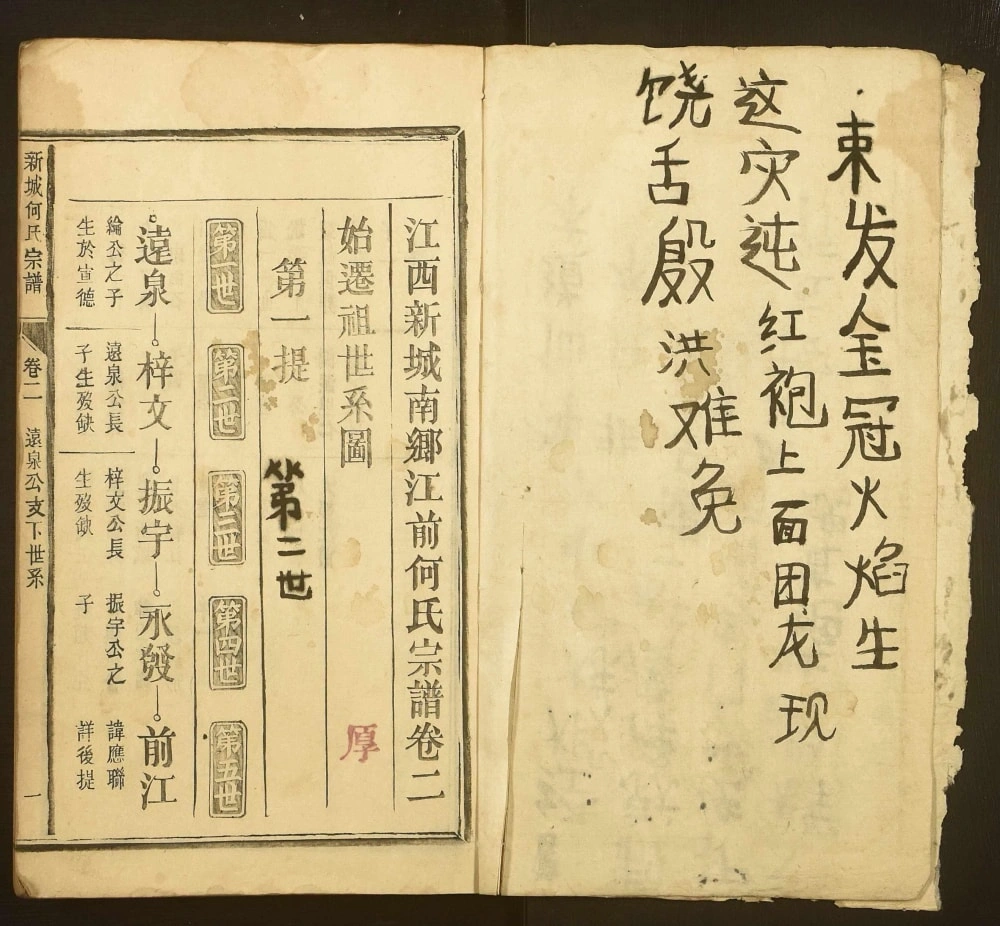 束发金冠火焰生
这灾迍红袍上面团龙现
饶舌殷洪难免
江西新城南鄉江前何氏宗譜卷二
始遷祖世系圖 厚
第一提 第二世
第一世 第二世 第三世 第四世 第五世
遠泉 梓文 振宇 永發 前江
綸公之子 遠泉公長 梓文公長 振宇公之 諱應聯
生於宣德 子生歿缺 生歿缺 子 詳後提
新城何氏宗譜 卷二 遠泉公支下世系 一